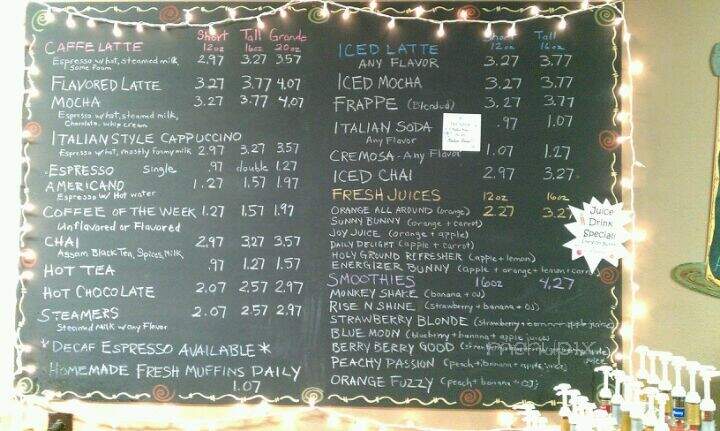 Short Tall Grande
12oz 16oz 20oz
CAFFE LATTE 2.97 3.27 3.57
Espresso w/hot, steamed milk,
some foam
FLAVORED LATTE 3.27 3.77 4.07
MOCHA 3.27 3.77 4.07
Espresso w/hot, steamed milk,
Chocolate, whip cream
ITALIAN STYLE CAPPUCCINO
Espresso w/hot, mostly foamy milk 2.97 3.27 3.57
ESPRESSO Single .97 double 1.27
AMERICANO 1.27 1.57 1.97
Espresso w/Hot water
COFFEE OF THE WEEK 1.27 1.57 1.97
Unflavored or Flavored
CHAI 2.97 3.27 3.57
Assam Black Tea, Spices, Milk
HOT TEA .97 1.27 1.57
HOT CHOCOLATE 2.07 2.57 2.97
STEAMERS 2.07 2.57 2.97
Steamed Milk w/any Flavor
*DECAF ESPRESSO AVAILABLE*
HOMEMADE FRESH MUFFINS DAILY
1.07
Short Tall
12oz 16oz
ICED LATTE 3.27 3.77
ANY FLAVOR
ICED MOCHA 3.27 3.77
FRAPPE (Blended) 3.27 3.77
ITALIAN SODA .97 1.07
Any Flavor
CREMOSA - Any Flavor 1.07 1.27
ICED CHAI 2.97 3.27
FRESH JUICES 12oz 16oz
ORANGE ALL AROUND (orange) 2.27 3.27
SUNNY BUNNY (orange + carrot)
JOY JUICE (orange + apple)
DAILY DELIGHT (apple + carrot)
HOLY GROUND REFRESHER (apple + lemon)
ENERGIZER BUNNY (apple + orange + lemon + carrot)
SMOOTHIES 16oz 4.27
MONKEY SHAKE (banana + OJ)
RISE N SHINE (strawberry + banana + OJ)
STRAWBERRY BLONDE (strawberry + apple juice)
BLUE MOON (blueberry + banana + apple juice)
BERRY BERRY GOOD
PEACHY PASSION (peach + banana + apple juice)
ORANGE FUZZY (peach + banana + OJ)
Juice
Drink
Special!
menupix